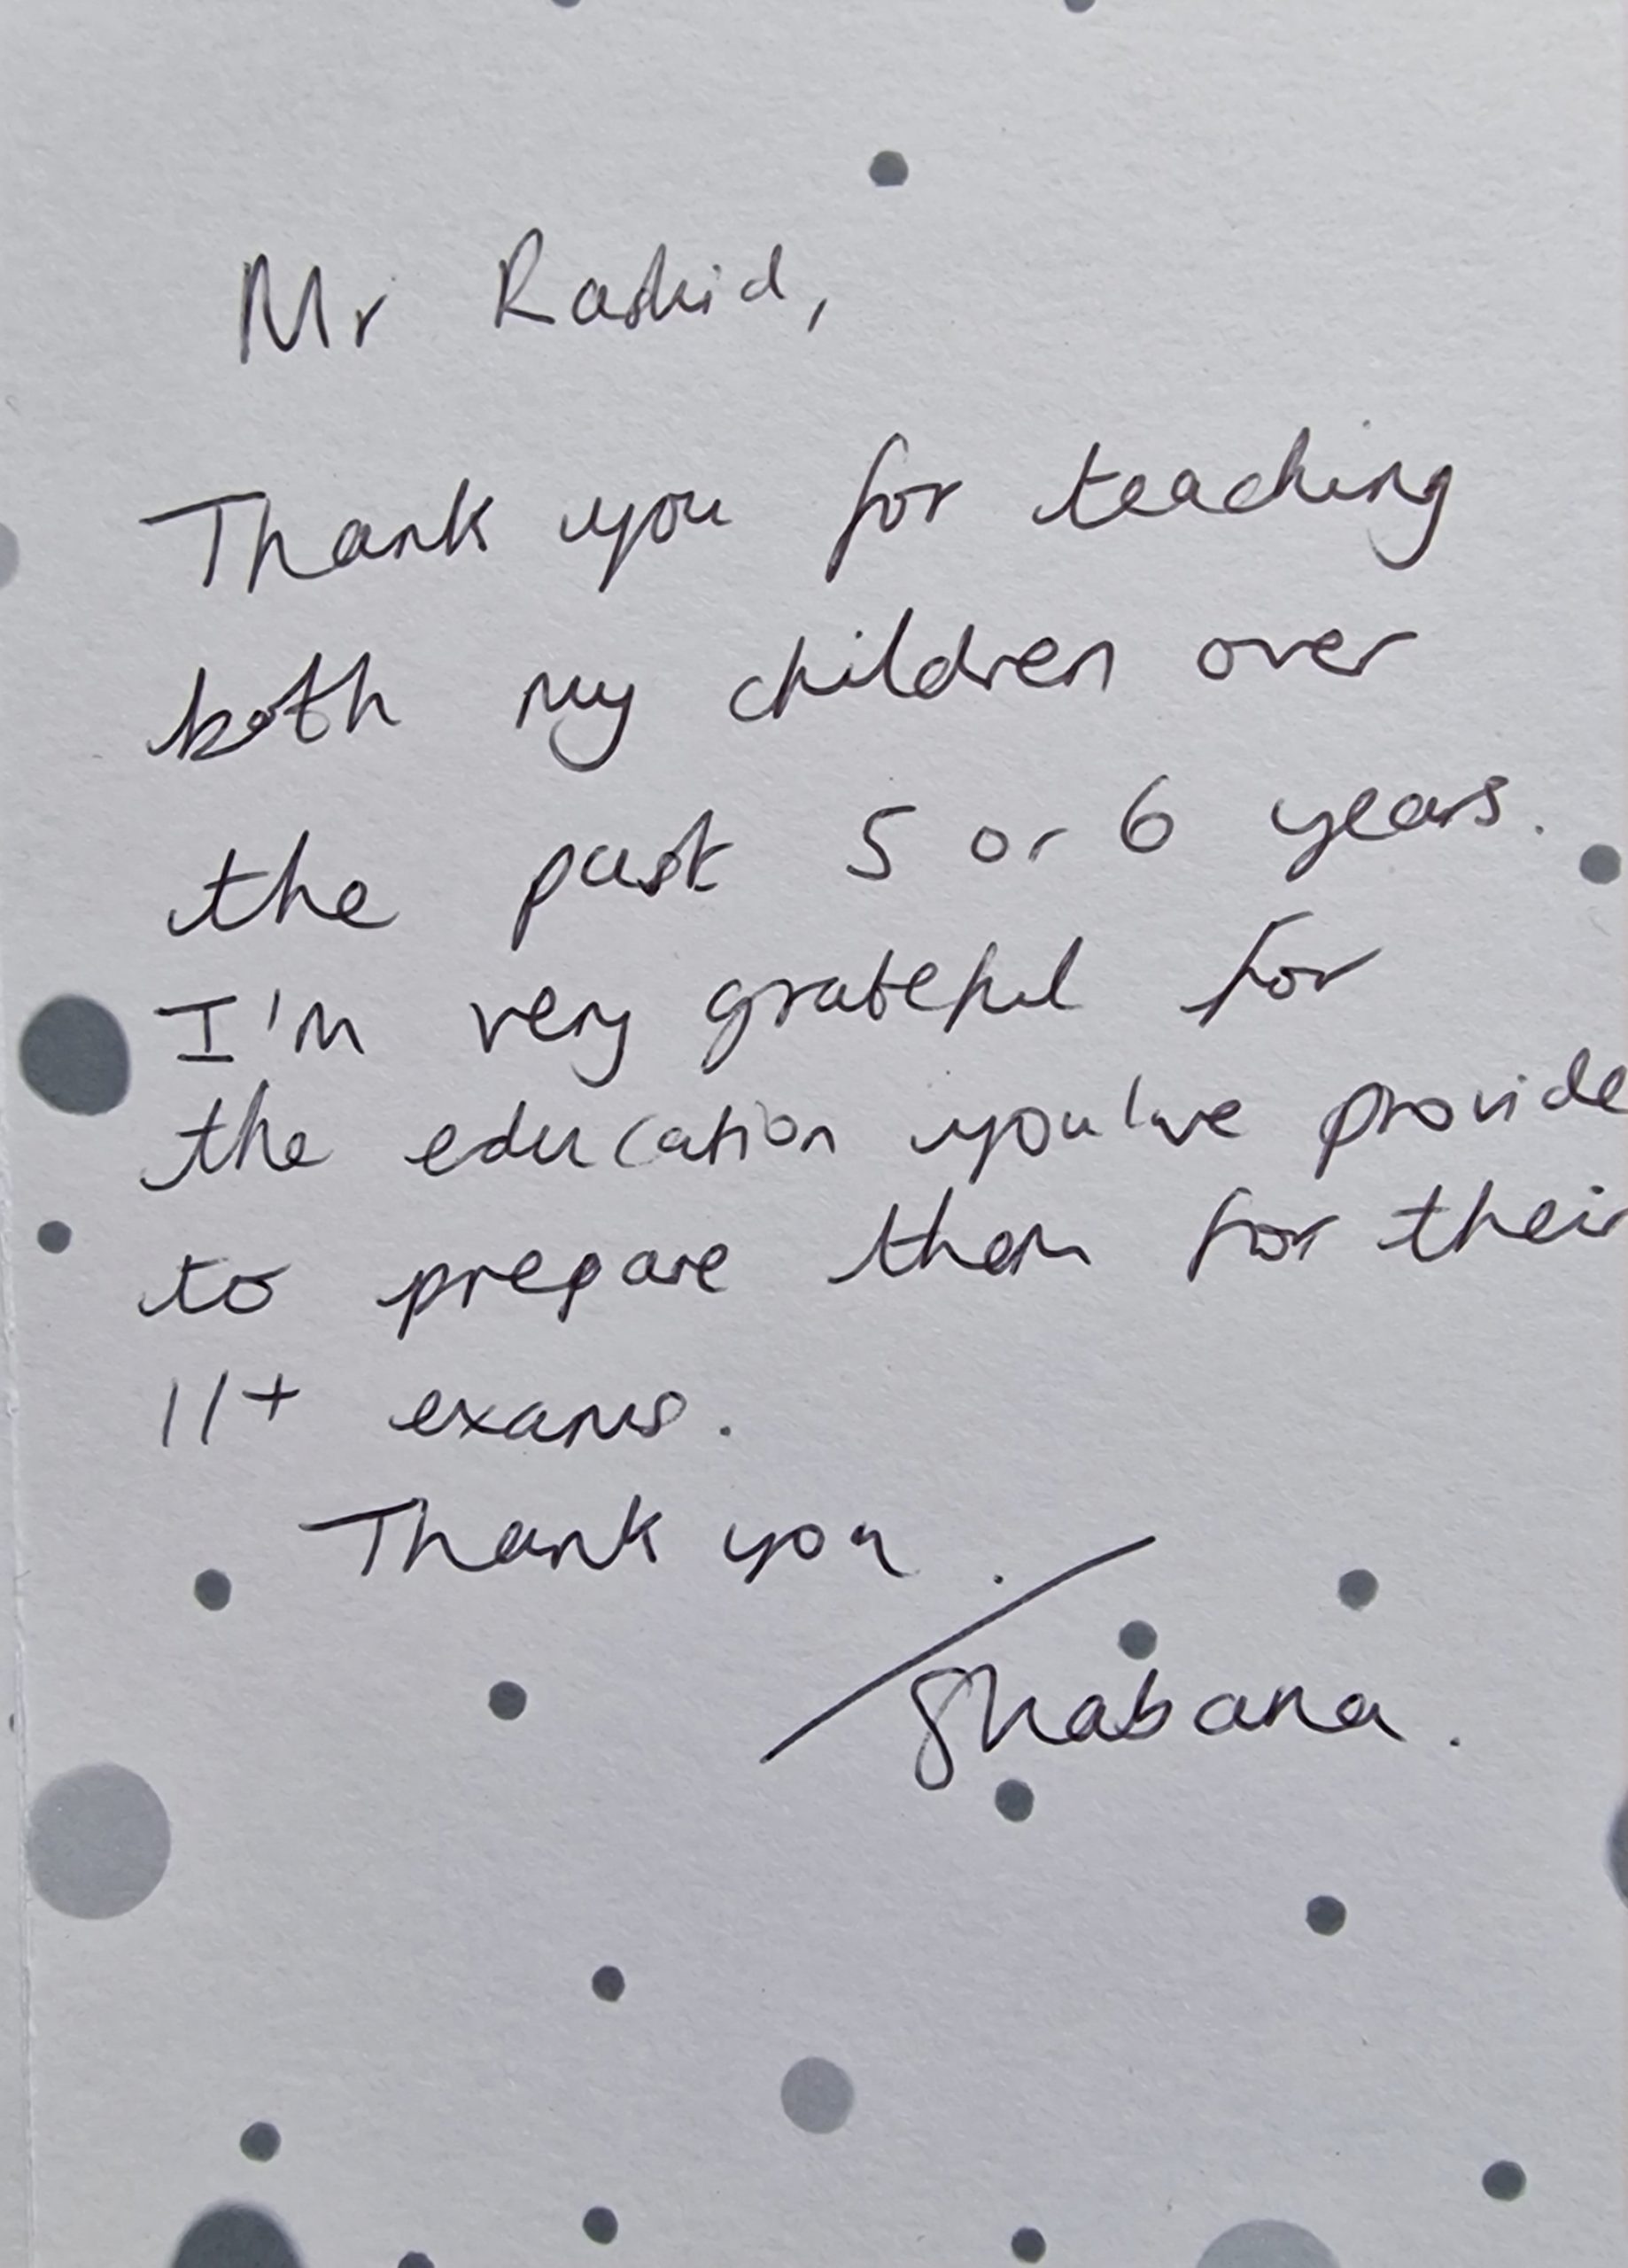 Mr Rashid,
Thank you for teaching
both my children over
the past 5 or 6 years.
I'm very grateful for
the education you've provide
to prepare them for their
11+ exams.
Thank you.
Shabana.